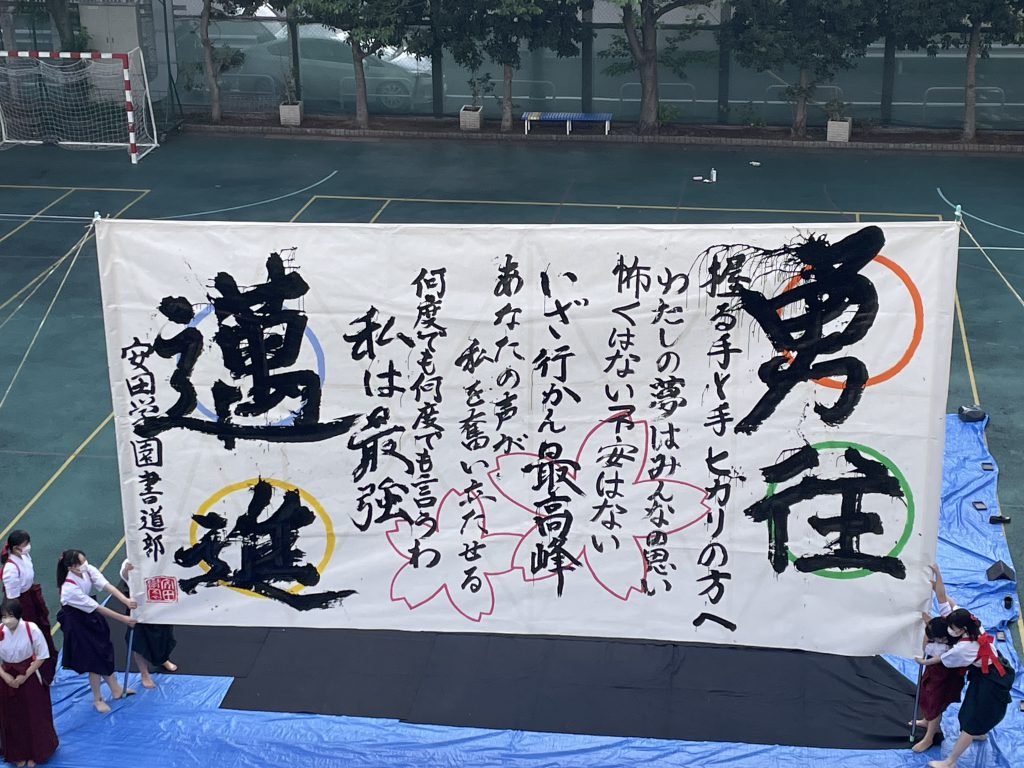 勇往
握る手と手ヒカリの方へ
わたしの夢はみんなの思い
怖くはない不安はない
いざ行かん最高峰
あなたの声が
私を奮い立たせる
何度でも何度でも言うわ
私は最強
邁進
安田学園書道部